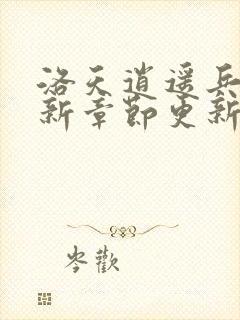 洛天逍遥兵
新章节更新
岑欢